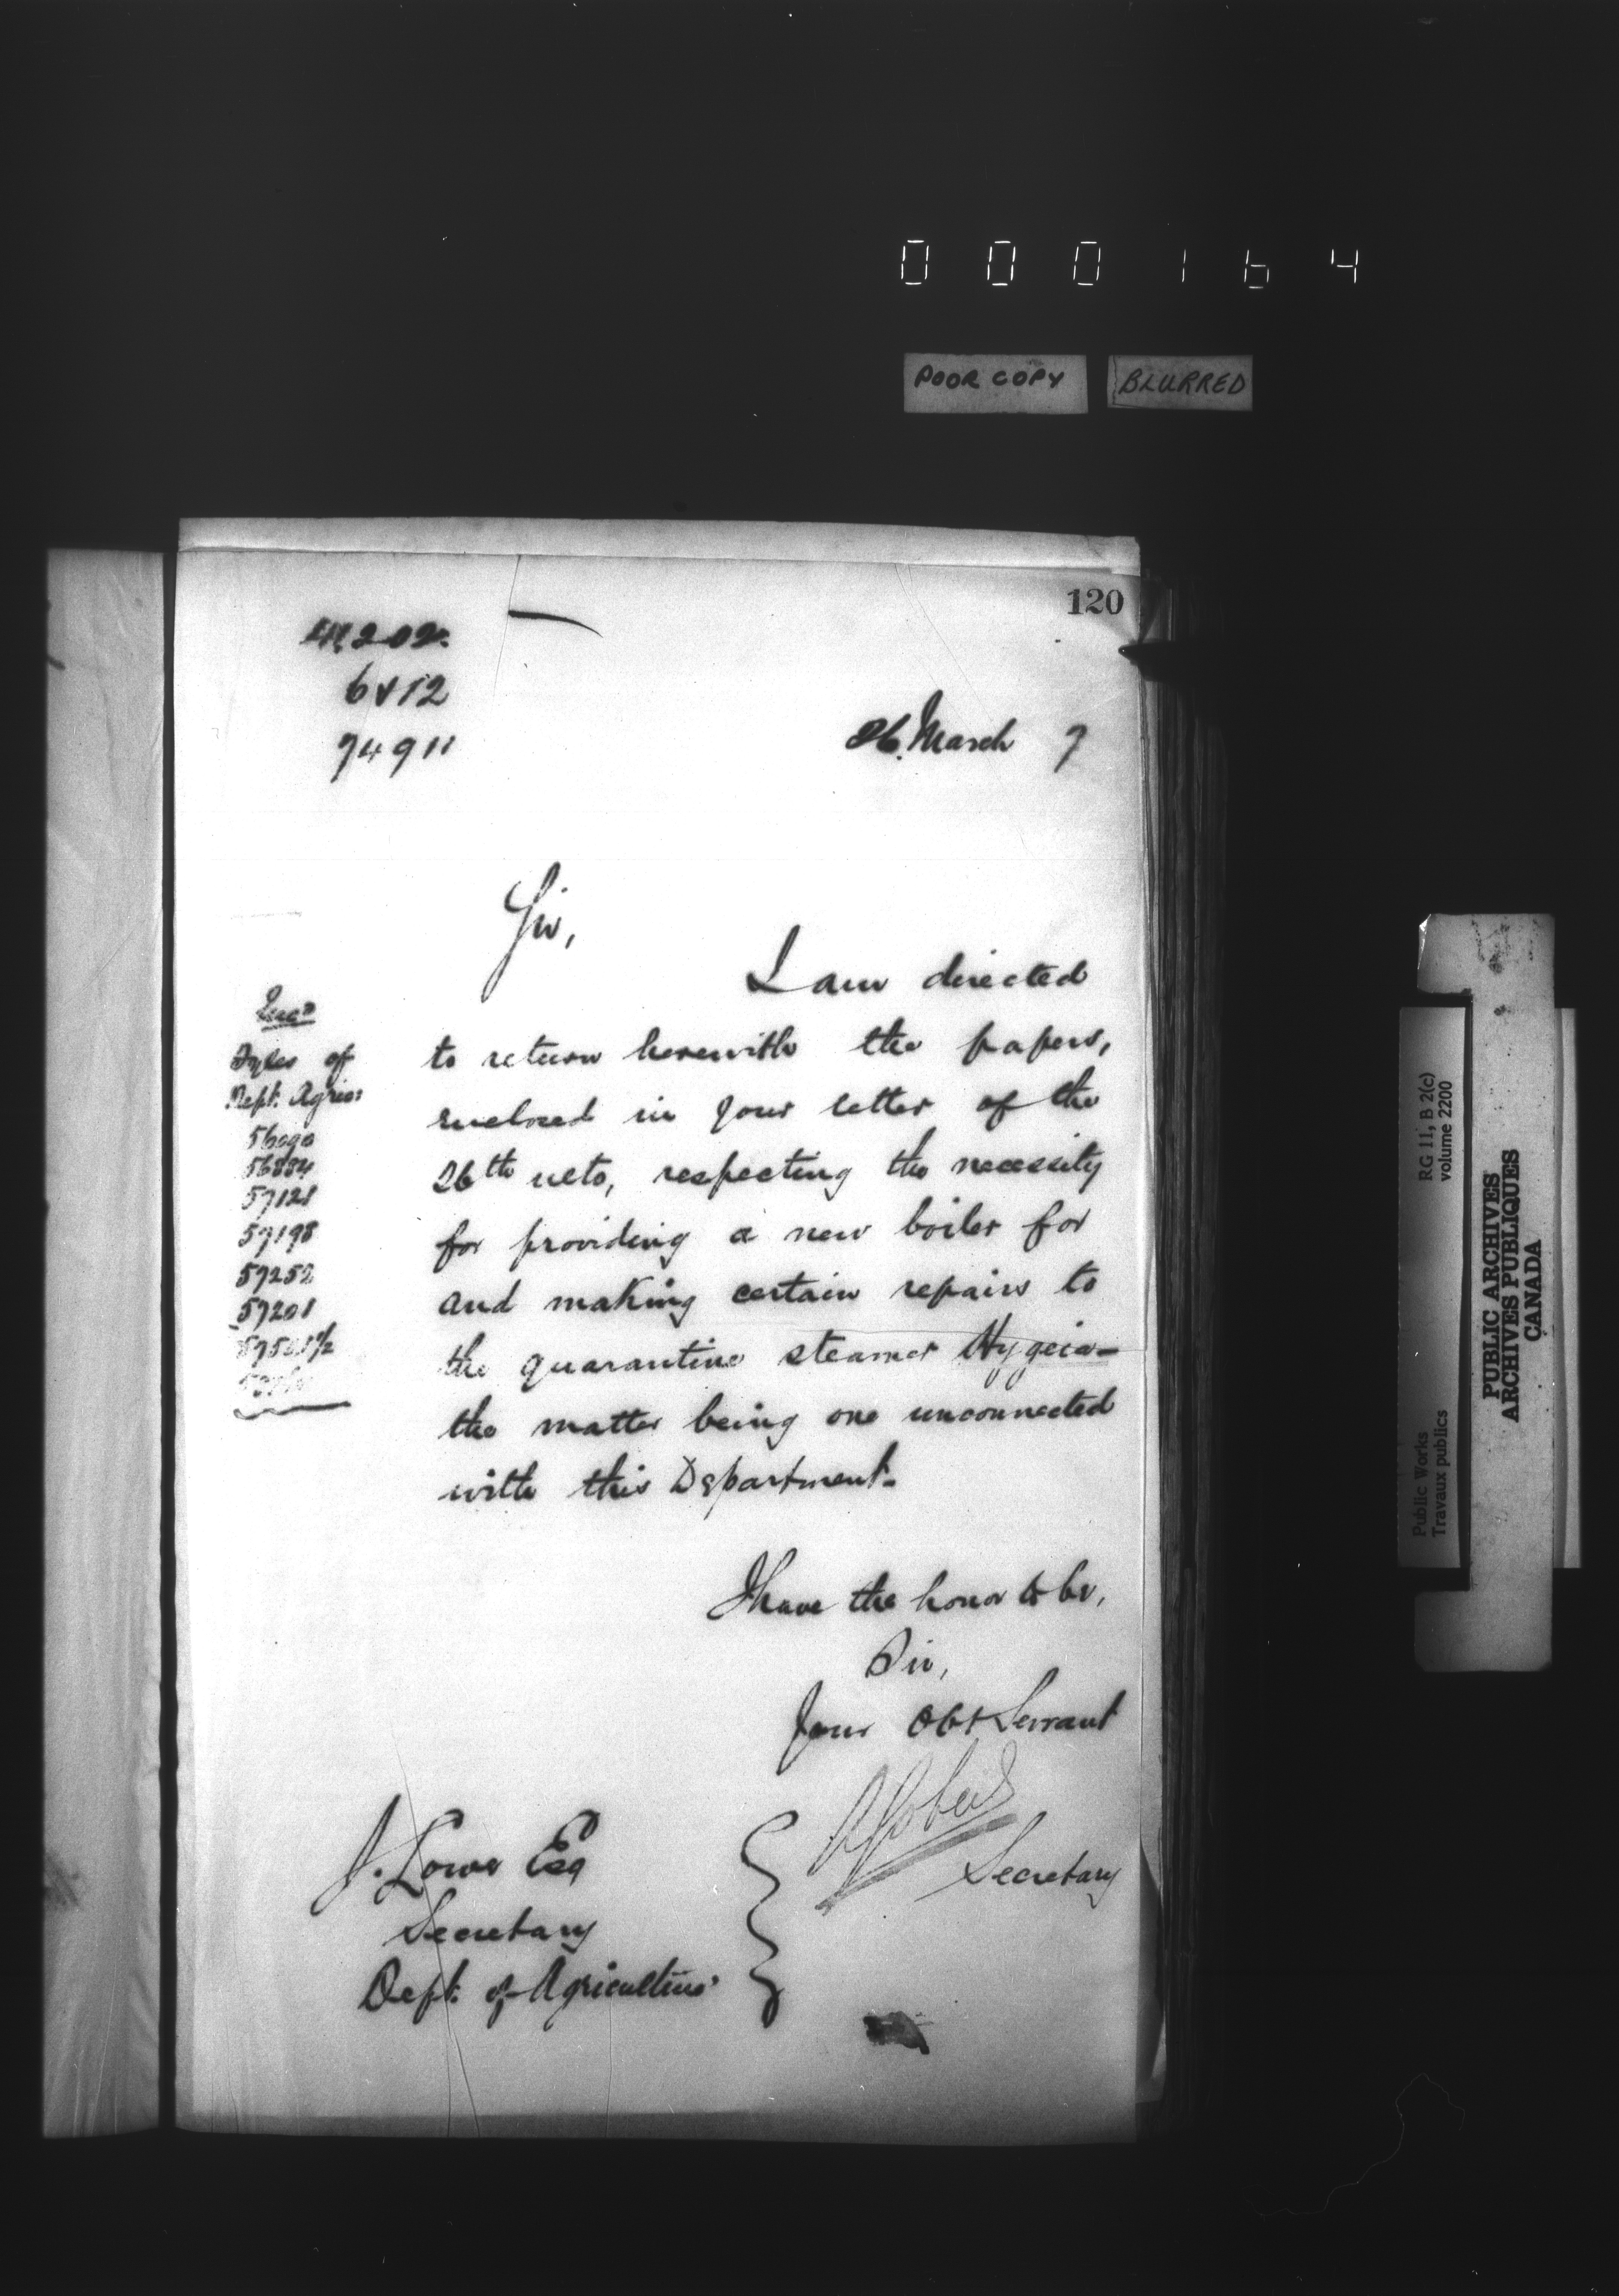 000164
POOR COPY BLURRED
120
6 & 12
74911
26. March 7
Sir,
I am directed
to return herewith the papers,
enclosed in your letter of the
26th ulto, respecting the necessity
for providing a new boiler for
and making certain repairs to
the quarantine steamer Hygeia-
the matter being one unconnected
with this Department.
Encs
Fyles of
Dept. Agric:
56884
57121
57198
57252
57201
I have the honor to be,
Sir,
Your Obt Servant
Secretary
J. Lowe Esq
Secretary
Dept. of Agriculture
RG 11, B 2(c)
volume 2200
Public Works
Travaux publics
PUBLIC ARCHIVES
ARCHIVES PUBLIQUES
CANADA